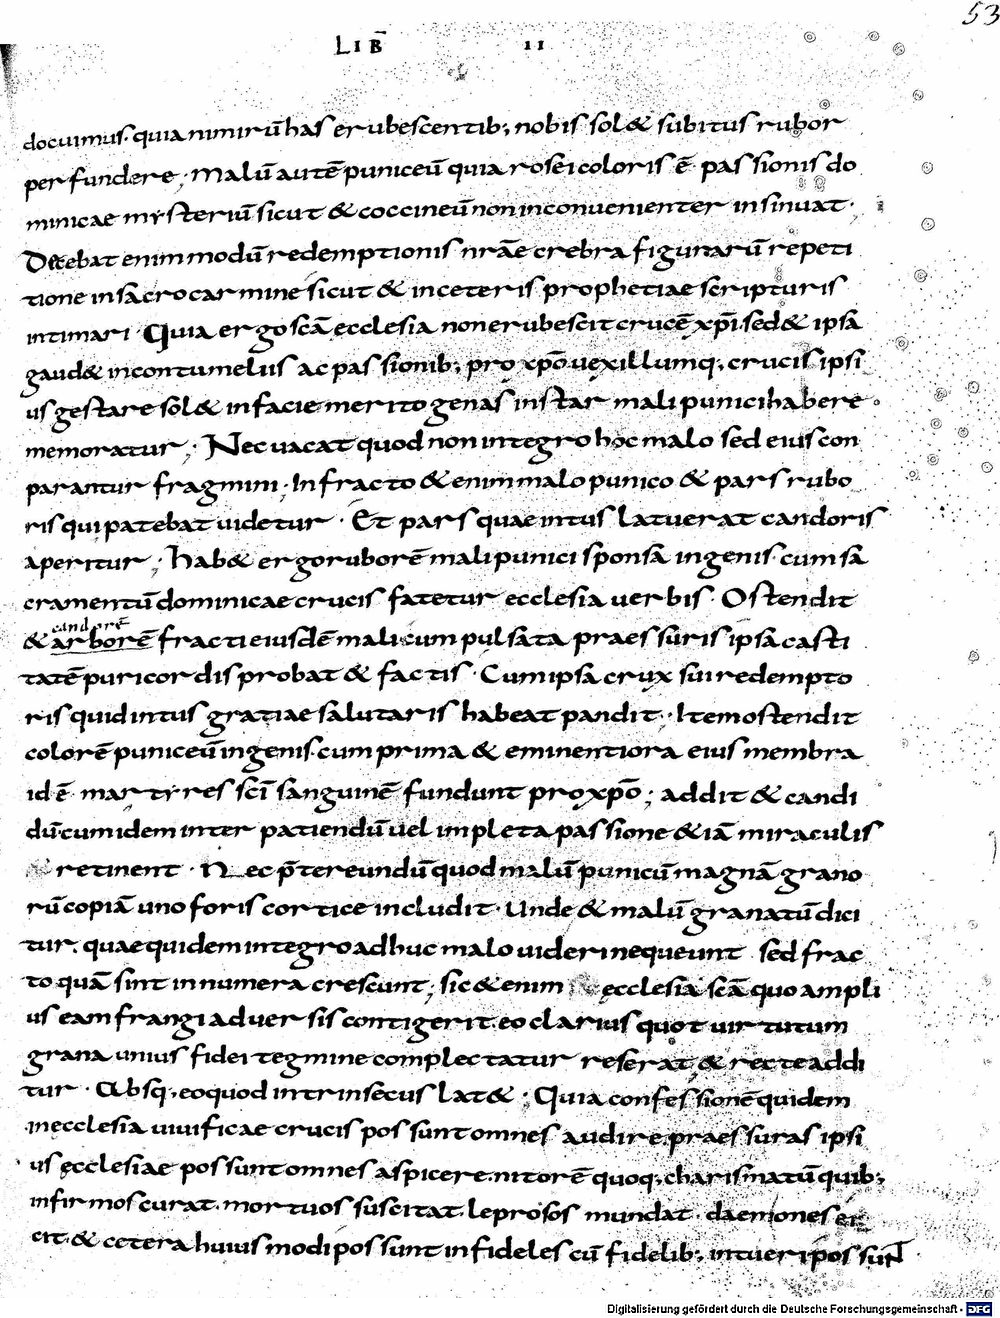 53
LIB̄ II
docuimus. quia nimirū has erubescentib; nobis sol& subitus rubor
perfundere; malū autē puniceū quia rosei coloris ē passionis do
minicae mysteriū sicut & coccineū non inconuenienter insinuat.
Decebat enim modū redemptionis nr̄ae crebra figurarū repeti
tione in sacro carmine sicut & in ceteris prophetiae scripturis
intimari. Quia ergo sc̄a ecclesia non erubescit crucē xp̄i. sed & ipsā
gaud& in contumeliis ac passionib; pro xp̄o uexillumq; crucis ipsi
us gestare sol& in facie merito genas instar mali punici habere
memoratur; Nec uacat quod non integro hoc malo sed eius con
parantur fragmini. In fracto & enim malo punico & pars rubo
ris qui patebat uidetur. Et pars quae intus latuerat candoris
aperitur; hab& ergo ruborē mali punici sponsa in genis. cum sa
cramentū dominicae crucis fatetur ecclesia uerbis. Ostendit
candorē
& arborē fracti eiusdē mali. cum pulsata praessuris ipsā casti
tatē puri cordis probat & factis. Cum ipsa crux sui redempto
ris quid intus gratiae salutaris habeat pandit. Item ostendit
colorē puniceū in genis. cum prima & eminentiora eius membra
id ē martyres sc̄i sanguinē fundunt pro xp̄o; addit & candi
dū. cum idem inter patiendū uel impleta passione & iā miraculis
retinent. Nec p̄tereundū quod malū punicū magnā grano
rū copiā uno foris cortice includit. Unde & malū granatū dici
tur. quae quidem integro adhuc malo uideri nequeunt sed frac
to quā sint innumera crescunt; sic & enim ecclesia sc̄a quo ampli
us eam frangi aduersis contigerit. eo clarius quot uirtutum
grana unius fidei tegmine complectatur reserat. & recte addi
tur. Absq; eo quod intrinsecus lat&; Quia confessionē quidem
in ecclesia uiuificae crucis possunt omnes audire. praessuras ipsi
us ecclesiae possunt omnes aspicere. nitorē quoq; charismatū quib;
infirmos curat. mortuos suscitat. leprosos mundat. daemones ei
cit. & cetera huiusmodi possunt infideles cū fidelib; intueri possuN̄
Digitalisierung gefördert durch die Deutsche Forschungsgemeinschaft - DFG